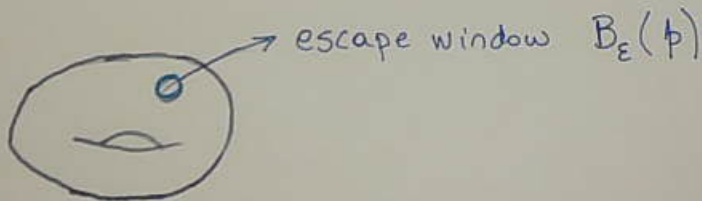 escape window B_ε(p)